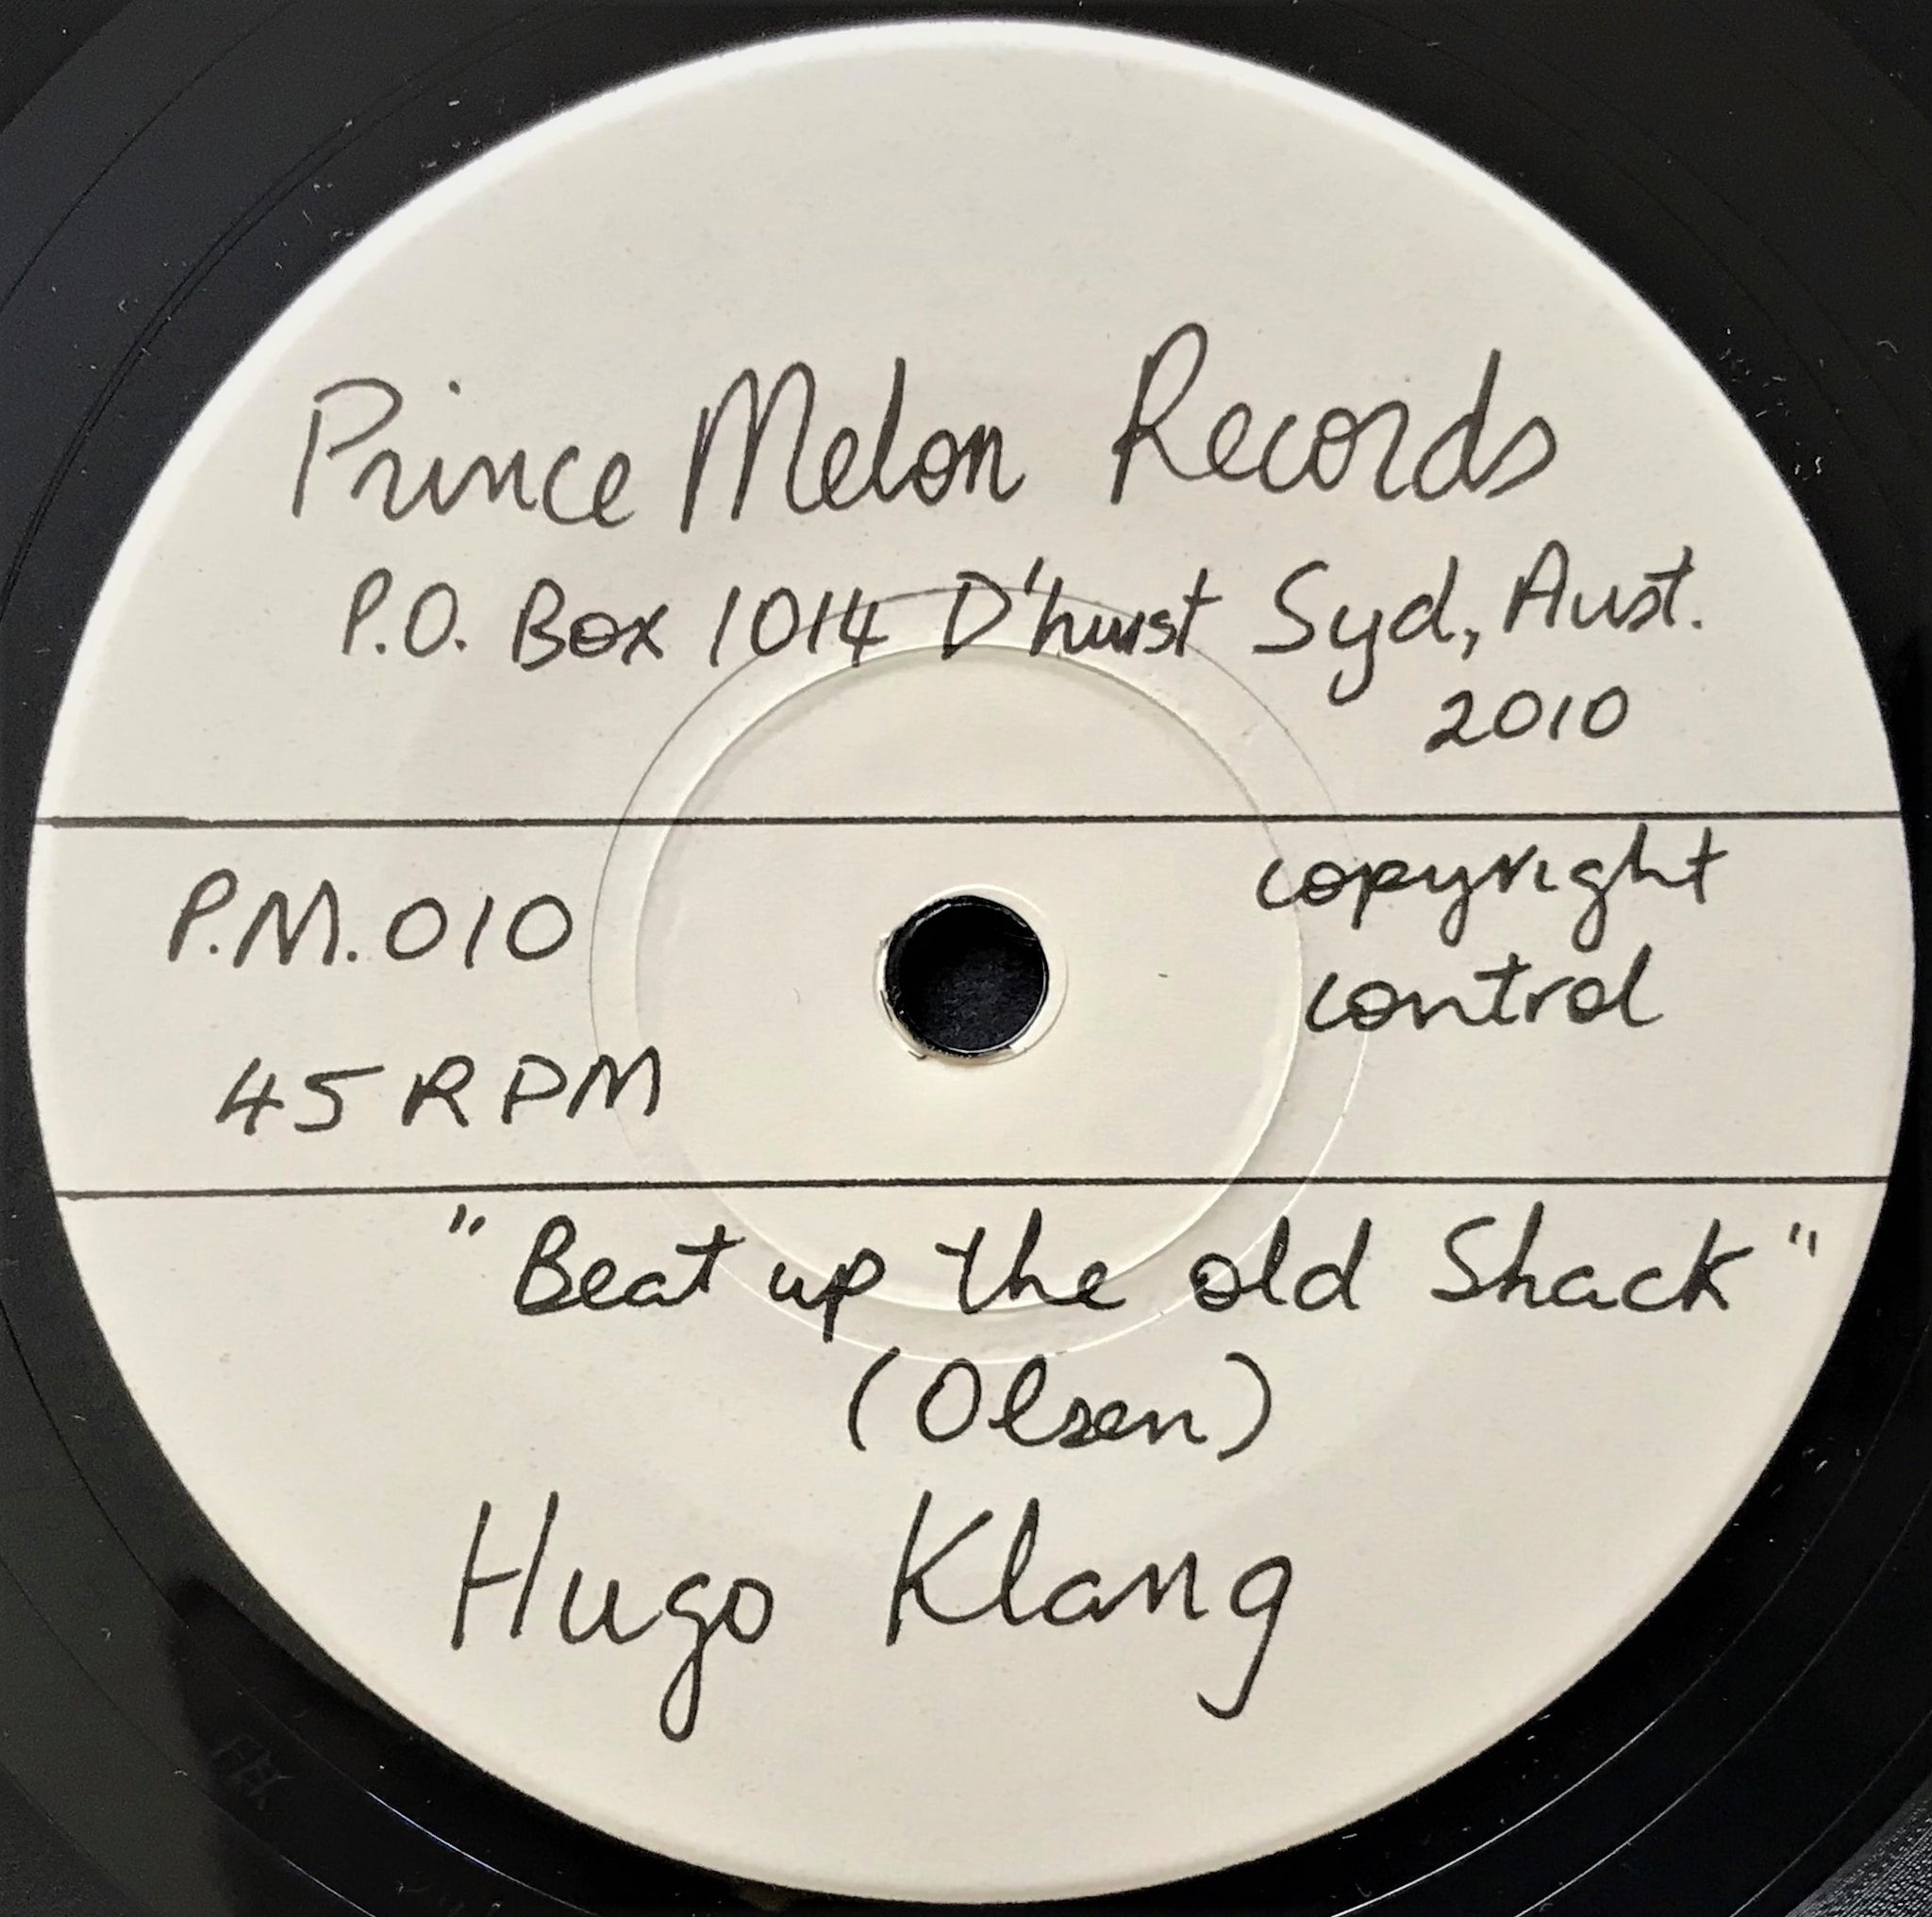 Prince Melon Records
P.O. Box 1014 D'hurst Syd, Aust.
2010
P.M.010
copyright
control
45 RPM
"Beat up the old Shack"
(Olsen)
Hugo Klang